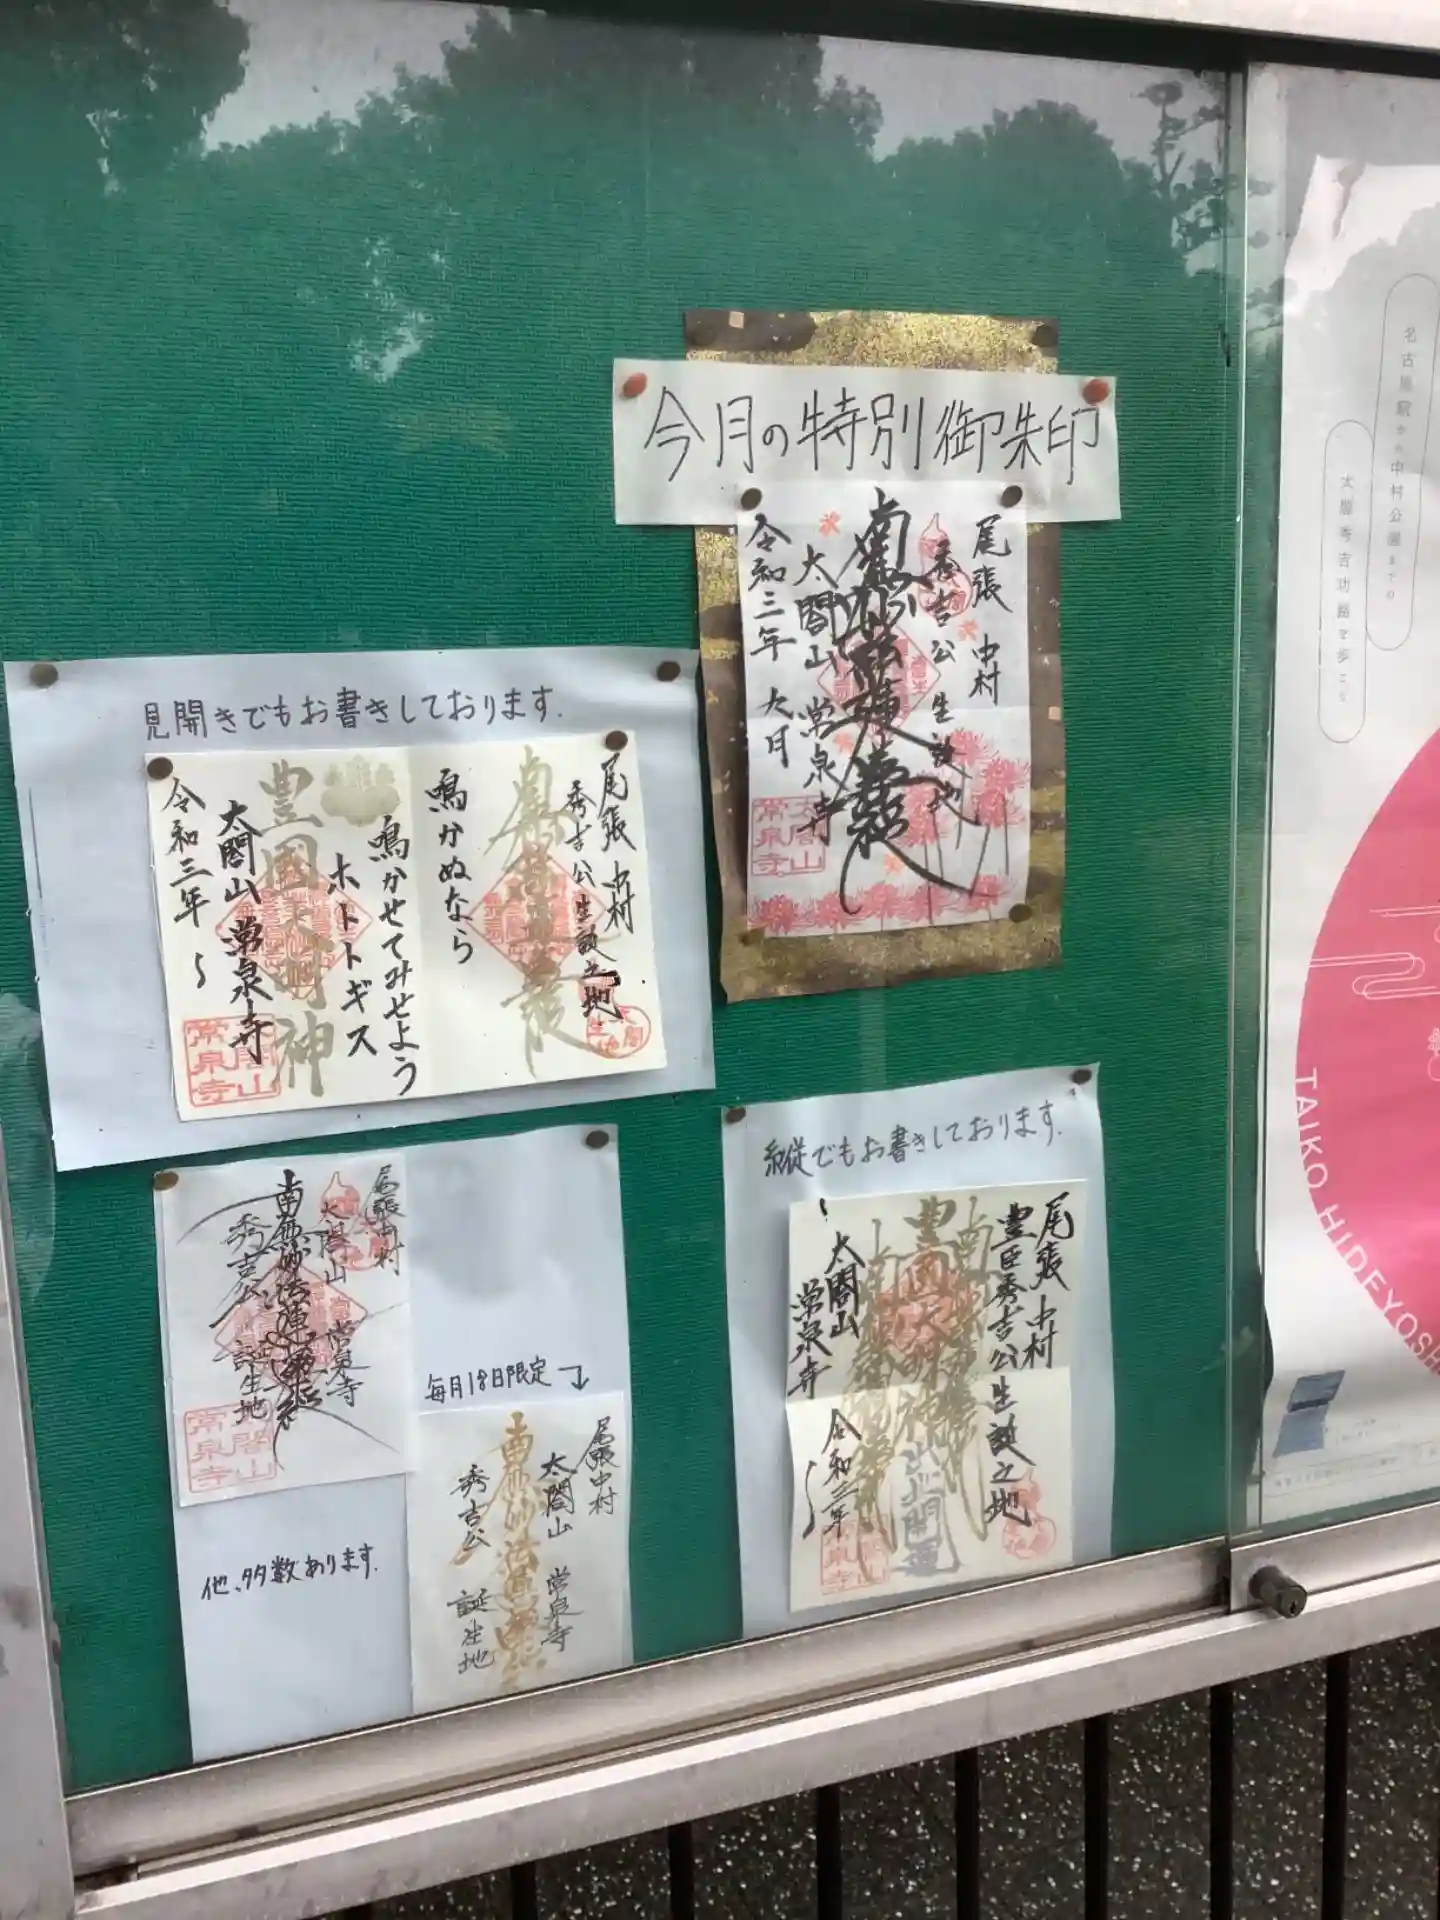 今月の特別御朱印
尾張 中村
秀吉公 生誕地
南無妙法蓮華経
太閤山 常泉寺
令和三年 九月
太閤山
常泉寺
見開きでもお書きしております.
尾張 中村
秀吉公生誕之地
鳴かぬなら
鳴かせてみせよう
ホトトギス
豊國大明神
太閤山 常泉寺
令和三年
太閤山
常泉寺
尾張中村
太閤山 常泉寺
南無妙法蓮華経
秀吉公 誕生地
太閤山
常泉寺
他、多数あります.
毎月18日限定
尾張中村
太閤山 常泉寺
南無妙法蓮華経
秀吉公 誕生地
縦でもお書きしております.
尾張 中村
豊臣秀吉公生誕之地
豊國大明神 出世開運
太閤山
常泉寺 令和三年
名古屋駅から中村公園までの
太閤秀吉功路を歩こう
TAIKO HIDEYOSH